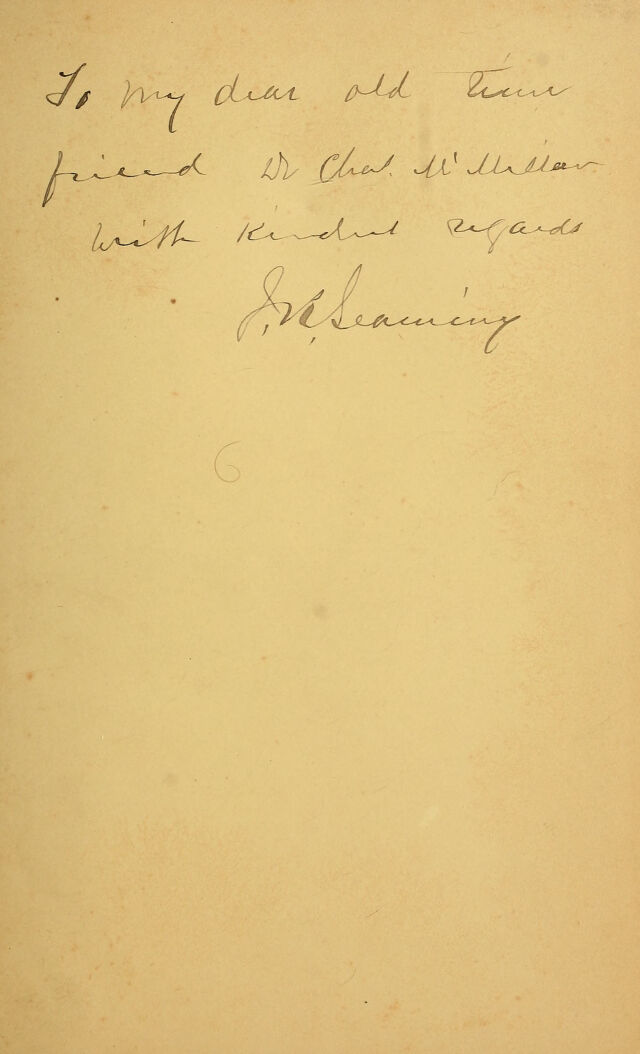 To my dear old time
friend Dr Chas. McMillan
with kindest regards
J. R. Leaming
6